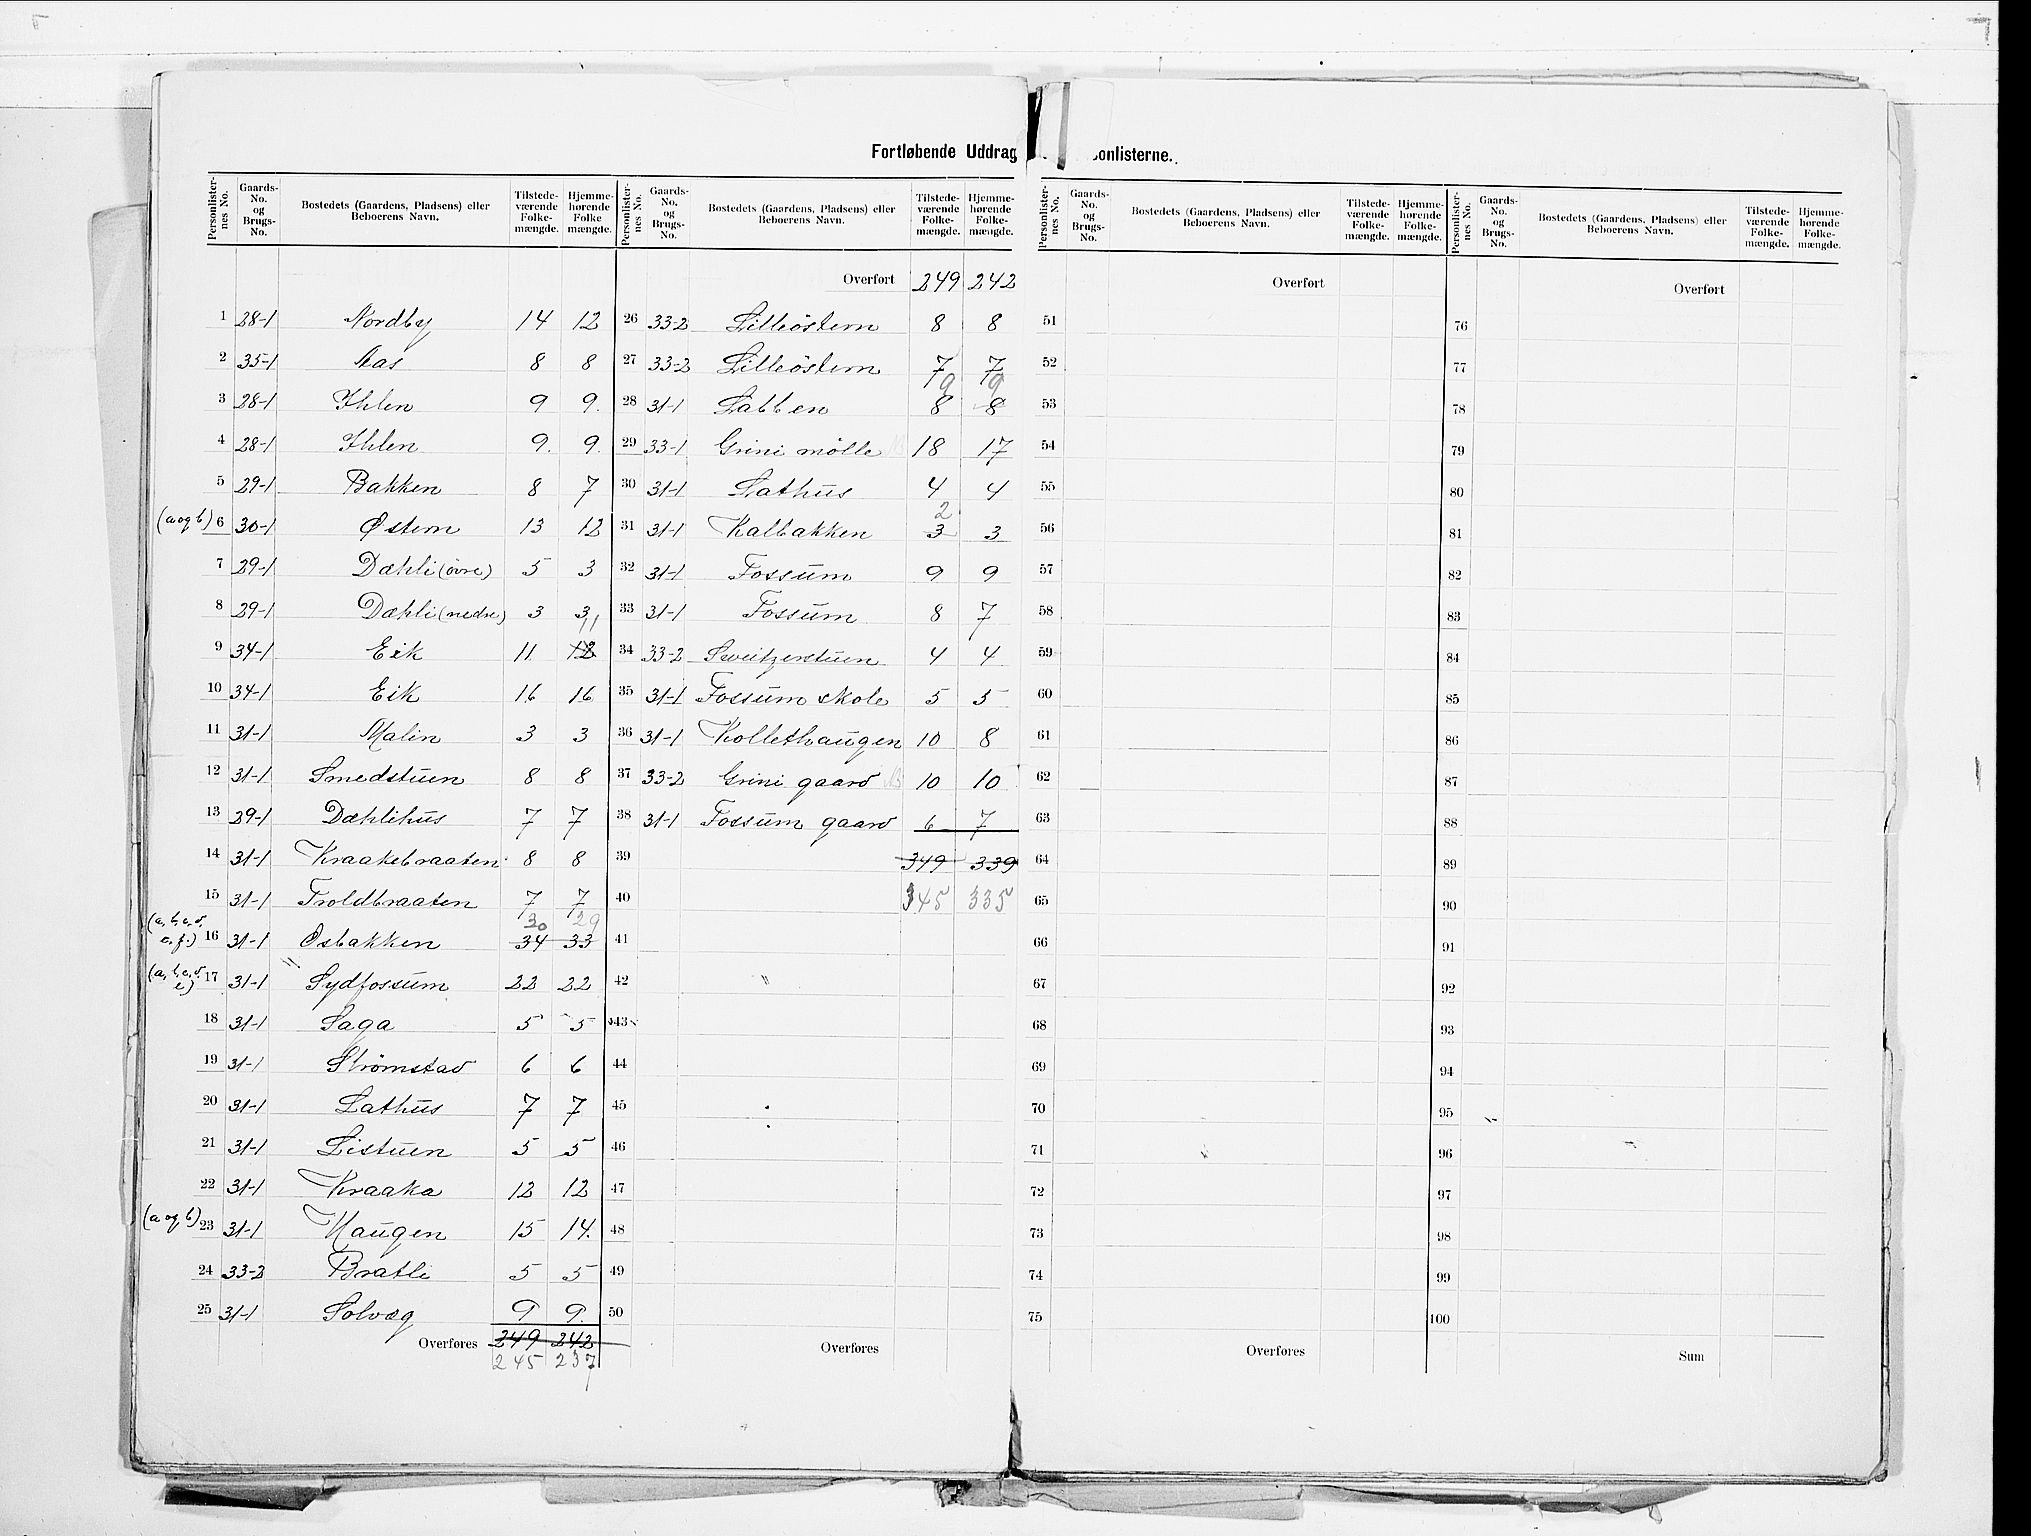 Fortløbende Uddrag onlisterne.
Personlister-nes No. Gaards-No. og Brugs-No. Bostedets (Gaardens, Pladsens) eller Beboerens Navn. Tilstede-værende Folke-mængde. Hjemme-hørende Folke mængde.
1 28-1 Nordby 14 12
2 35-1 Aas 8 8
3 28-1 Ihlen 9 9.
4 28-1 Ihlen 9. 9.
5 29-1 Bakken 8 7
(a og b) 6 30-1 Østern 13 12
7 29-1 Dæhli (övre) 5 3
8 29-1 Dæhli (nedre) 3 3
9 34-1 Eik 11 12 11
10 34-1 Eik 16 16
11 31-1 Malin 3 3
12 31-1 Smedstuen 8 8
13 29-1 Dæhlihus 7 7
14 31-1 Kraakebraaten 8 8
15 31-1 Troldbraaten 7 7
30 29
(a, b, c, d, e, f.) 16 31-1 Osbakken 34 33
(a, b, c, d, e) 17 31-1 Sydfossum 22 22
18 31-1 Saga 5 5
19 31-1 Strömstad 6 6
20 31-1 Lathus 7 7
21 31-1 Listuen 5 5
22 31-1 Kraaka 12 12
(a og b) 23 31-1 Haugen 15 14.
24 33-2 Bratli 5 5
25 31-1 Solvæg 9 9.
Overføres 249 242
245 237
Personlister-nes No. Gaards-No. og Brugs-No. Bostedets (Gaardens, Pladsens) eller Beboerens Navn. Tilstede-værende Folke-mængde. Hjemme-hørende Folke-mængde.
Overført 249 242
26 33-2 Lilleöstern 8 8
27 33-2 Lilleöstern 7 7
9 9
28 31-1 Labben 8 8
29 33-1 Grini mölle 18 17
30 31-1 Lathus 4 4
2
31 31-1 Kalbakken 3 3
32 31-1 Fossum 9 9
33 31-1 Fossum 8 7
34 33-2 Sveitzerstuen 4 4
35 31-1 Fossum skole 5 5
36 31-1 Kollethaugen 10 8
37 33-2 Grini gaard 10 10
38 31-1 Fossum gaard 6 7
39 349 339
40 345 335
41
42
43
44
45
46
47
48
49
50
Overføres
Personlister-nes No. Gaards-No. og Brugs-No. Bostedets (Gaardens, Pladsens) eller Beboerens Navn. Tilstede-værende Folke-mængde. Hjemme-hørende Folke-mængde.
Overført
51
52
53
54
55
56
57
58
59
60
61
62
63
64
65
66
67
68
69
70
71
72
73
74
75
Overføres
Personlister-nes No. Gaards-No. og Brugs-No. Bostedets (Gaardens, Pladsens) eller Beboerens Navn. Tilstede-værende Folke-mængde. Hjemme-hørende Folke-mængde.
Overført
76
77
78
79
80
81
82
83
84
85
86
87
88
89
90
91
92
93
94
95
96
97
98
99
100
Sum